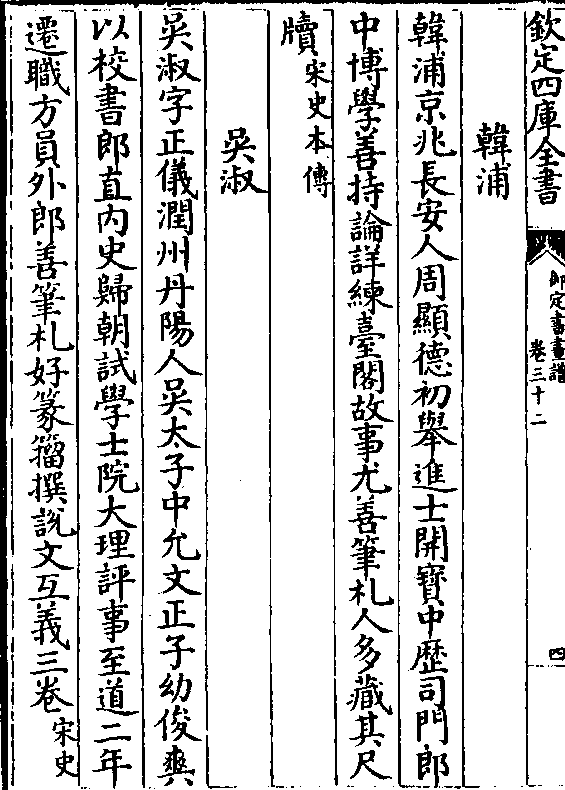 欽定四庫全書
御定書畫譜
卷三十二
四
韓浦
韓浦京兆長安人周顯德初舉進士開寶中歴司門郎
中博學善持論詳練臺閣故事尤善筆札人多藏其尺
牘宋史本傳
吳淑
吳淑字正儀潤州丹陽人吳太子中允文正子幼俊爽
以校書郎直内史歸朝試學士院大理評事至道二年
遷職方員外郎善筆札好篆籀撰說文互義三卷宋史